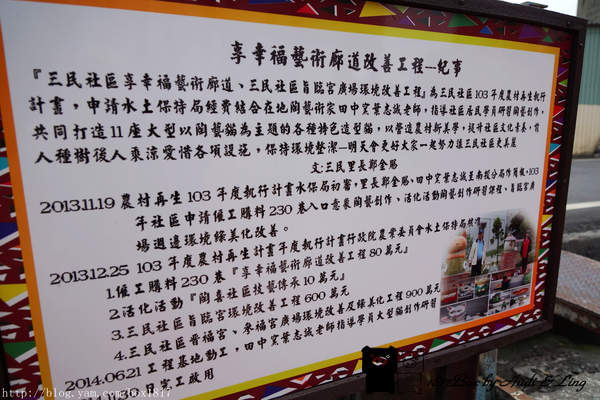 享幸福藝術廊道改善工程---紀事
『三民社區享幸福藝術廊道、三民社區旨臨宮廣場環境改善工程』為三民社區103年度農村再生執行
計畫，申請水土保持局經費結合在地陶藝術家田中窯葉志誠老師，指導社區居民學員研習陶藝創作，
共同打造11座大型以陶藝貓為主題的各種特色造型貓，以營造農村新美學，提升社區文化素養，前
人種樹後人乘涼愛惜各項設施，保持環境整潔---明天會更好大家一起努力讓三民社區更美麗
文:三民里長郭金賜
2013.11.19 農村再生103年度執行計畫水保局初審，里長郭金賜、田中窯葉志誠至南投分局作簡報，103
年社區申請僱工購料230巷入口意象陶藝創作、活化活動陶藝創作研習課程、旨臨宮廣
場週邊環境綠美化改善。
2013.12.25 103年度農村再生計畫年度執行計畫行政院農業委員會水土保持局核准
1.僱工購料230巷『享幸福藝術廊道改善工程80萬元』
2.活化活動『陶喜社區技藝傳承10萬元』
3.三民社區旨臨宮環境改善工程600萬元
4.三民社區普福宮、參福宮廣場環境改善及綠美化工程900萬元
2014.06.21 工程基地動工，田中窯葉志誠老師指導學員大型貓創作研習
日完工啟用
http://blog.yam.com/box1817
by Andi & Ling